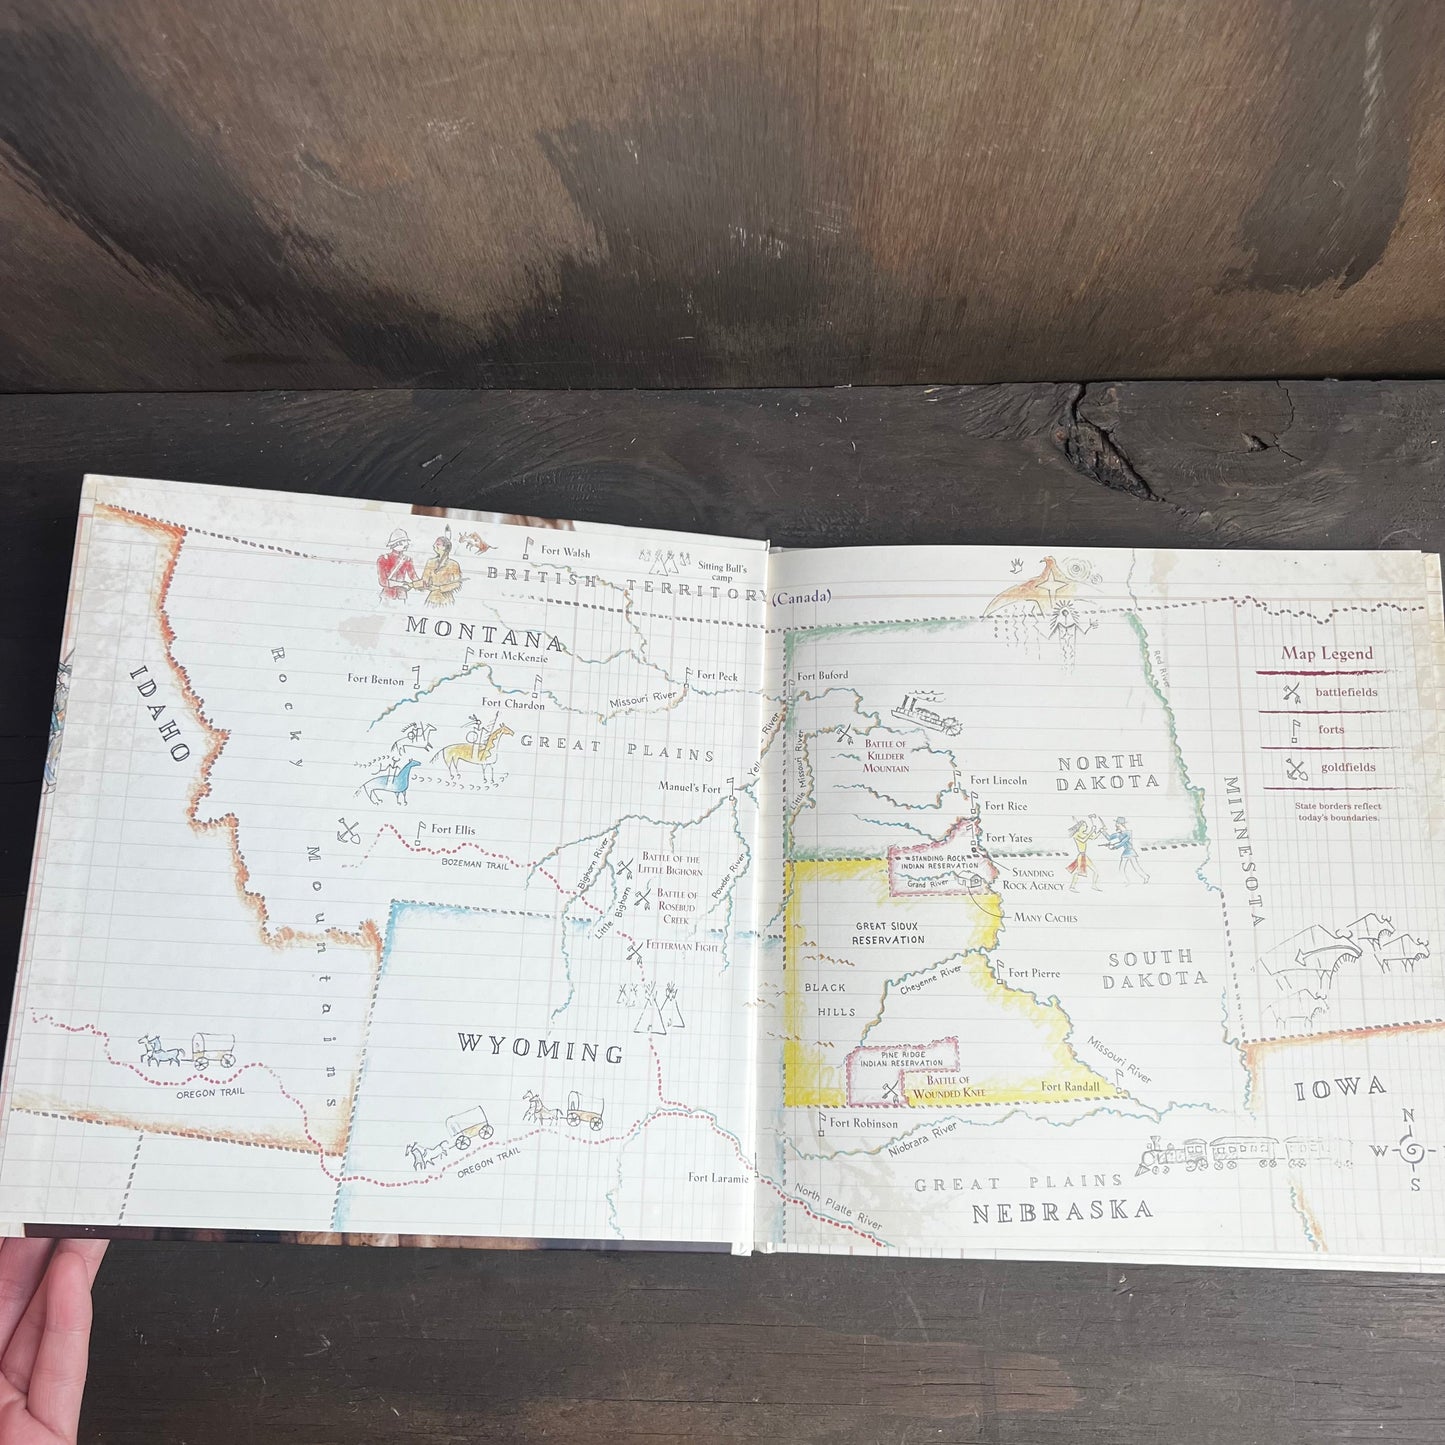 Fort Walsh
Sitting Bull's
camp
BRITISH TERRITORY
(Canada)
MONTANA
IDAHO
Rocky
Mountains
Fort McKenzie
Fort Benton
Fort Chardon
Missouri River
Fort Peck
GREAT PLAINS
Manuel's Fort
Fort Ellis
BOZEMAN TRAIL
Bighorn River
Little Bighorn
BATTLE OF THE
LITTLE BIGHORN
BATTLE OF
ROSEBUD
CREEK
Powder River
FETTERMAN FIGHT
WYOMING
OREGON TRAIL
OREGON TRAIL
Fort Laramie
River
Fort Buford
Little Missouri River
BATTLE OF
KILLDEER
MOUNTAIN
Fort Lincoln
Fort Rice
Fort Yates
NORTH
DAKOTA
Red River
STANDING ROCK
INDIAN RESERVATION
Grand River
STANDING
ROCK AGENCY
MANY CACHES
GREAT SIOUX
RESERVATION
BLACK
HILLS
Cheyenne River
Fort Pierre
SOUTH
DAKOTA
Missouri River
PINE RIDGE
INDIAN RESERVATION
BATTLE OF
WOUNDED KNEE
Fort Randall
Fort Robinson
Niobrara River
GREAT PLAINS
NEBRASKA
North Platte River
MINNESOTA
IOWA
Map Legend
battlefields
forts
goldfields
State borders reflect
today's boundaries.
N
W
S